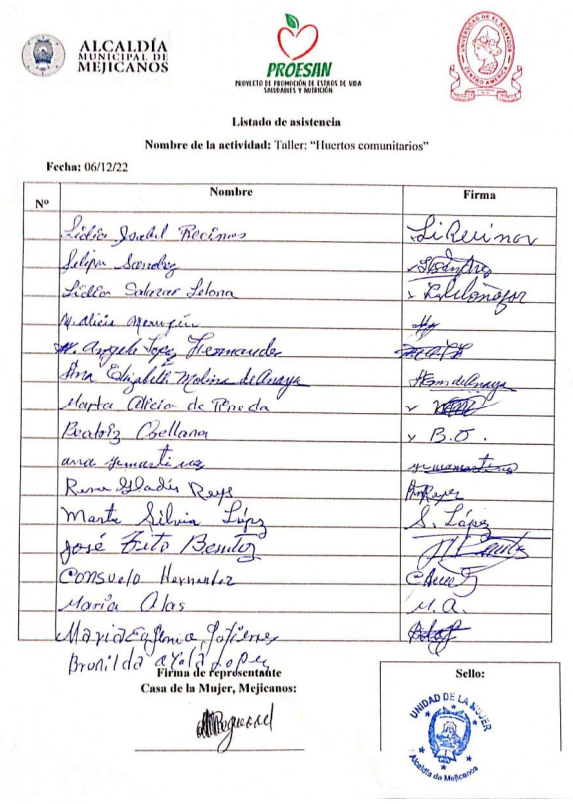 ALCALDÍA
MUNICIPAL DE
MEJICANOS
PROESAN
PROYECTO DE PROMOCIÓN DE ESTILOS DE VIDA
SALUDABLES Y NUTRICIÓN
UNIVERSIDAD DE EL SALVADOR
CENTRO AMERICA
Listado de asistencia
Nombre de la actividad: Taller: “Huertos comunitarios”
Fecha: 06/12/22
Nº Nombre Firma
Lidia Isabel Recinos
Felipa Sanchez
Lidia Salazar
M. Alicia
M. Angela Lopez Hernandez
Ana Elizabeth Molina de Anaya de Anaya
Marta Alicia de Pineda
Beatriz Orellana x B.O.
ana
Rosa Gladis Reys
Marta Silvia López S. López
José Tito Benitez
Consuelo Hernandez
Maria Alas M.A.
Maria Eugenia
Brunilda ayala Lopez
Firma de representante
Casa de la Mujer, Mejicanos:
Sello:
UNIDAD DE LA MUJER
Alcaldía de Mejicanos